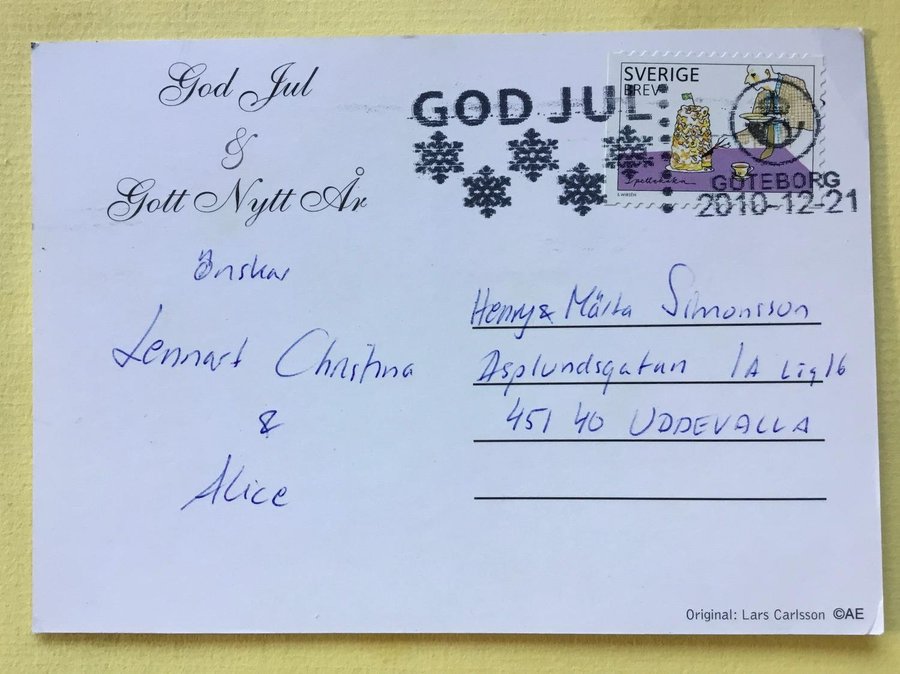 God Jul
&
Gott Nytt År
Önskar
Lennart Christina
&
Alice
GOD JUL
SVERIGE
BREV
Spettekaka
GÖTEBORG
2010-12-21
Henry & Märta Simonsson
Asplundsgatan 1A Lig 16
451 40 UDDEVALLA
Original: Lars Carlsson ©AE